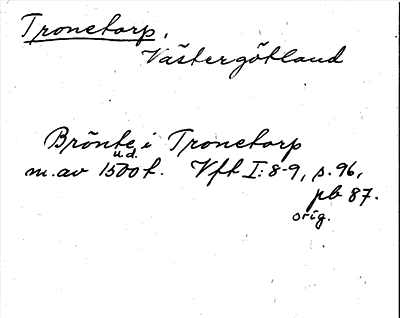 Tronetorp,
Västergötland
Brönte i Tronetorp
u.d.
m. av 1500 t. Vft I:8-9, s. 96,
pb 87.
orig.